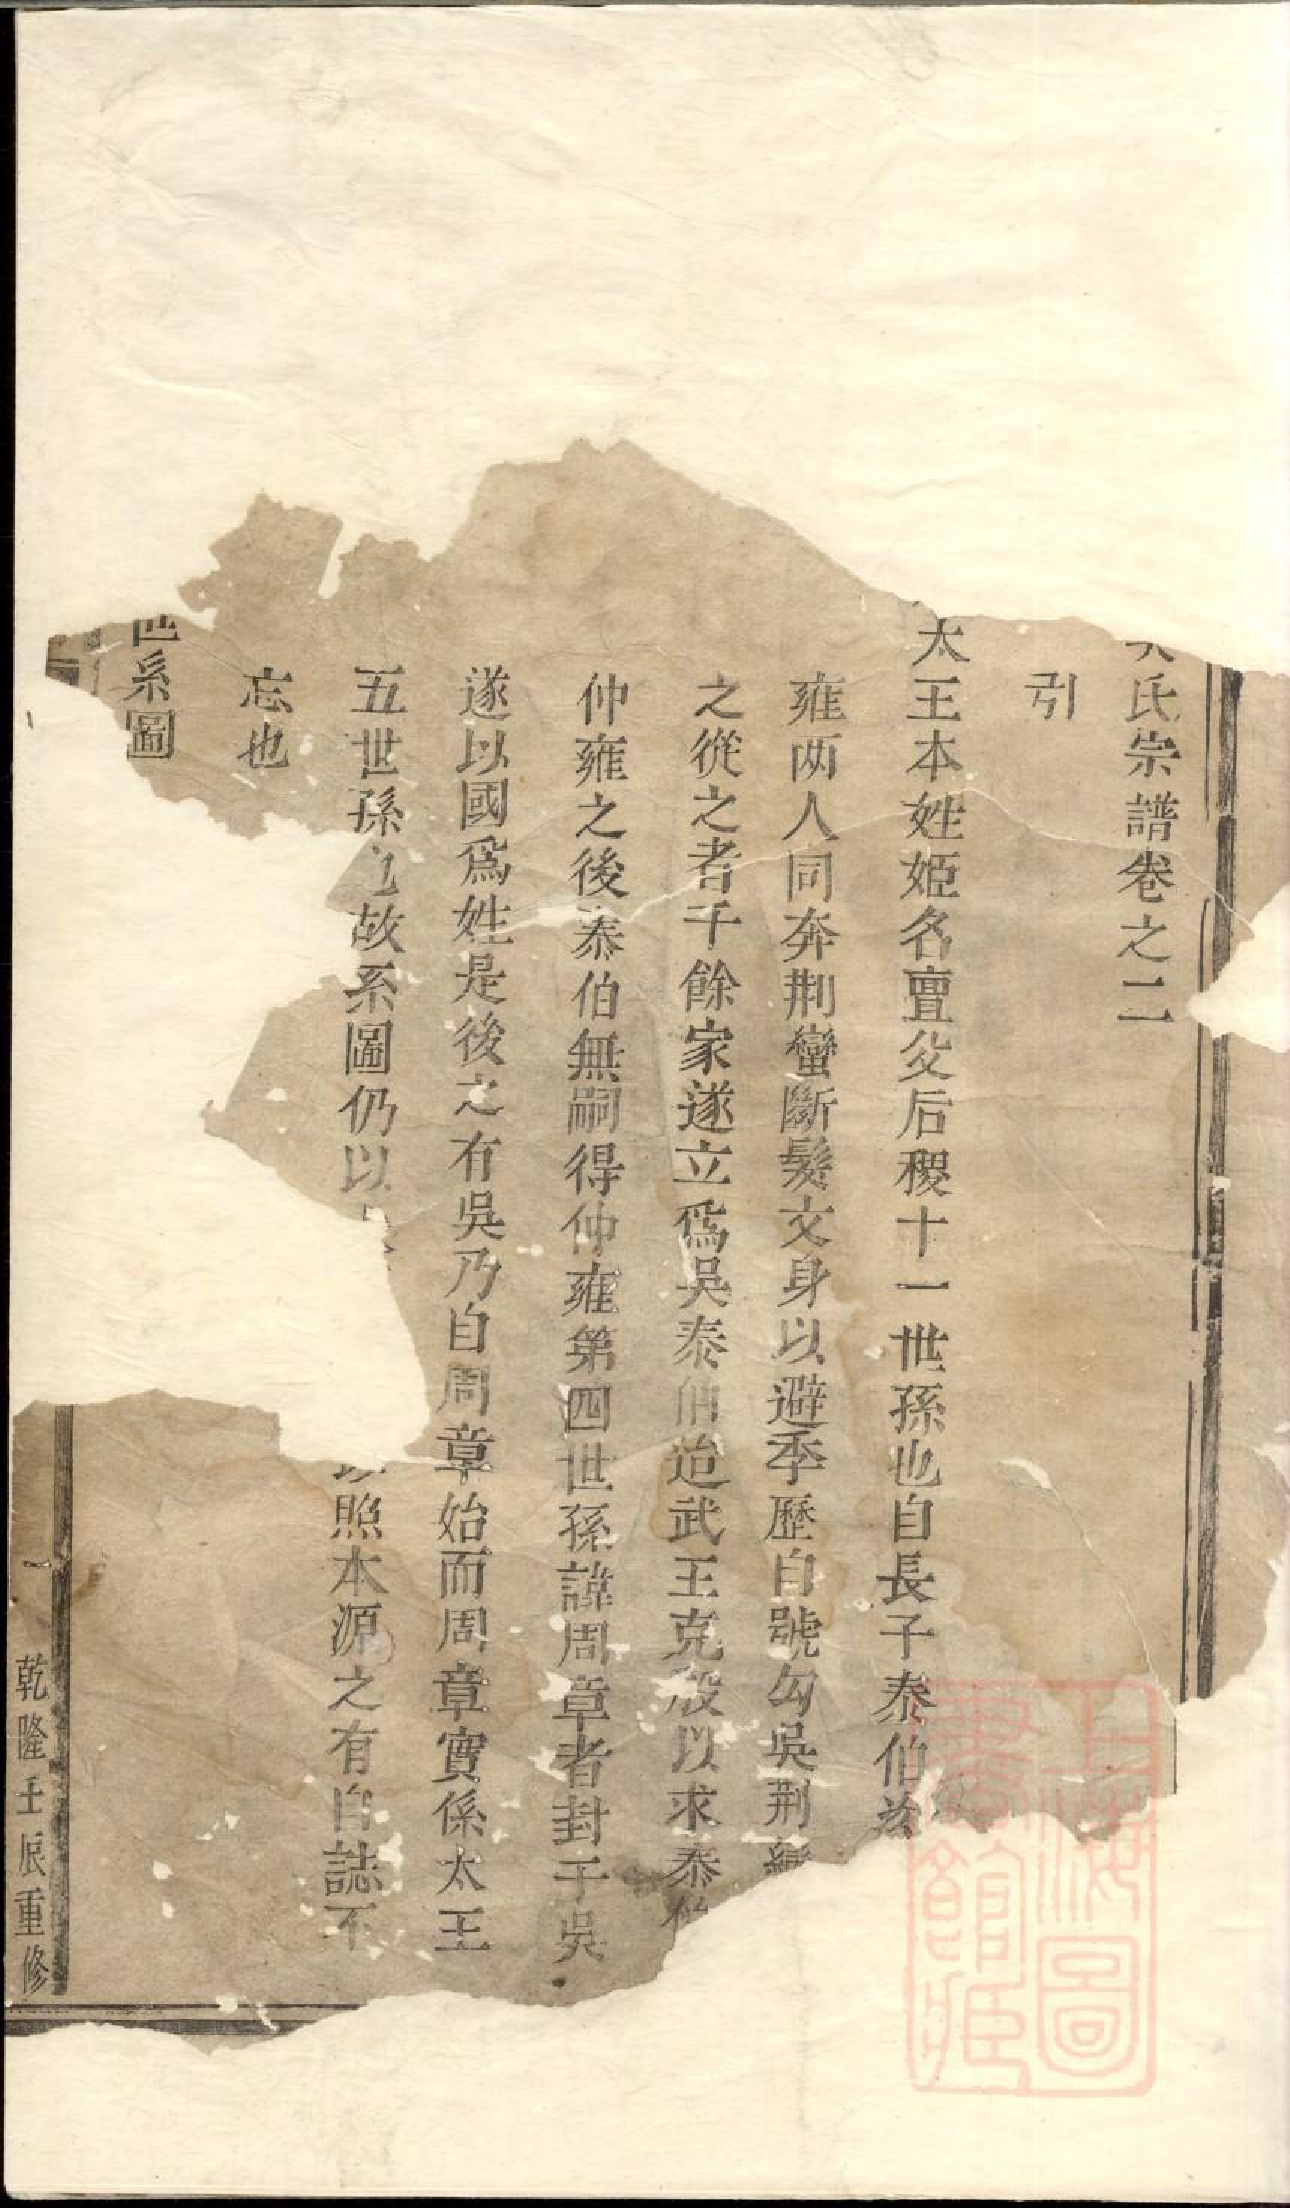 氏宗譜卷之二
引
太王本姓姬名亶父后稷十一世孫也自長子泰伯
雍两人同奔荆蠻斷髮文身以避季歷自號勾吳荆蠻
之從之者千餘家遂立爲吳泰伯迨武王克殷以求泰伯
仲雍之後泰伯無嗣得仲雍第四世孫諱周章者封于吳
遂以國爲姓是後之有吳乃自周章始而周章實係太王
五世孫也故系圖仍以照本源之有自誌不
忘也
世系圖
一 乾隆壬辰重修
上海圖書館藏